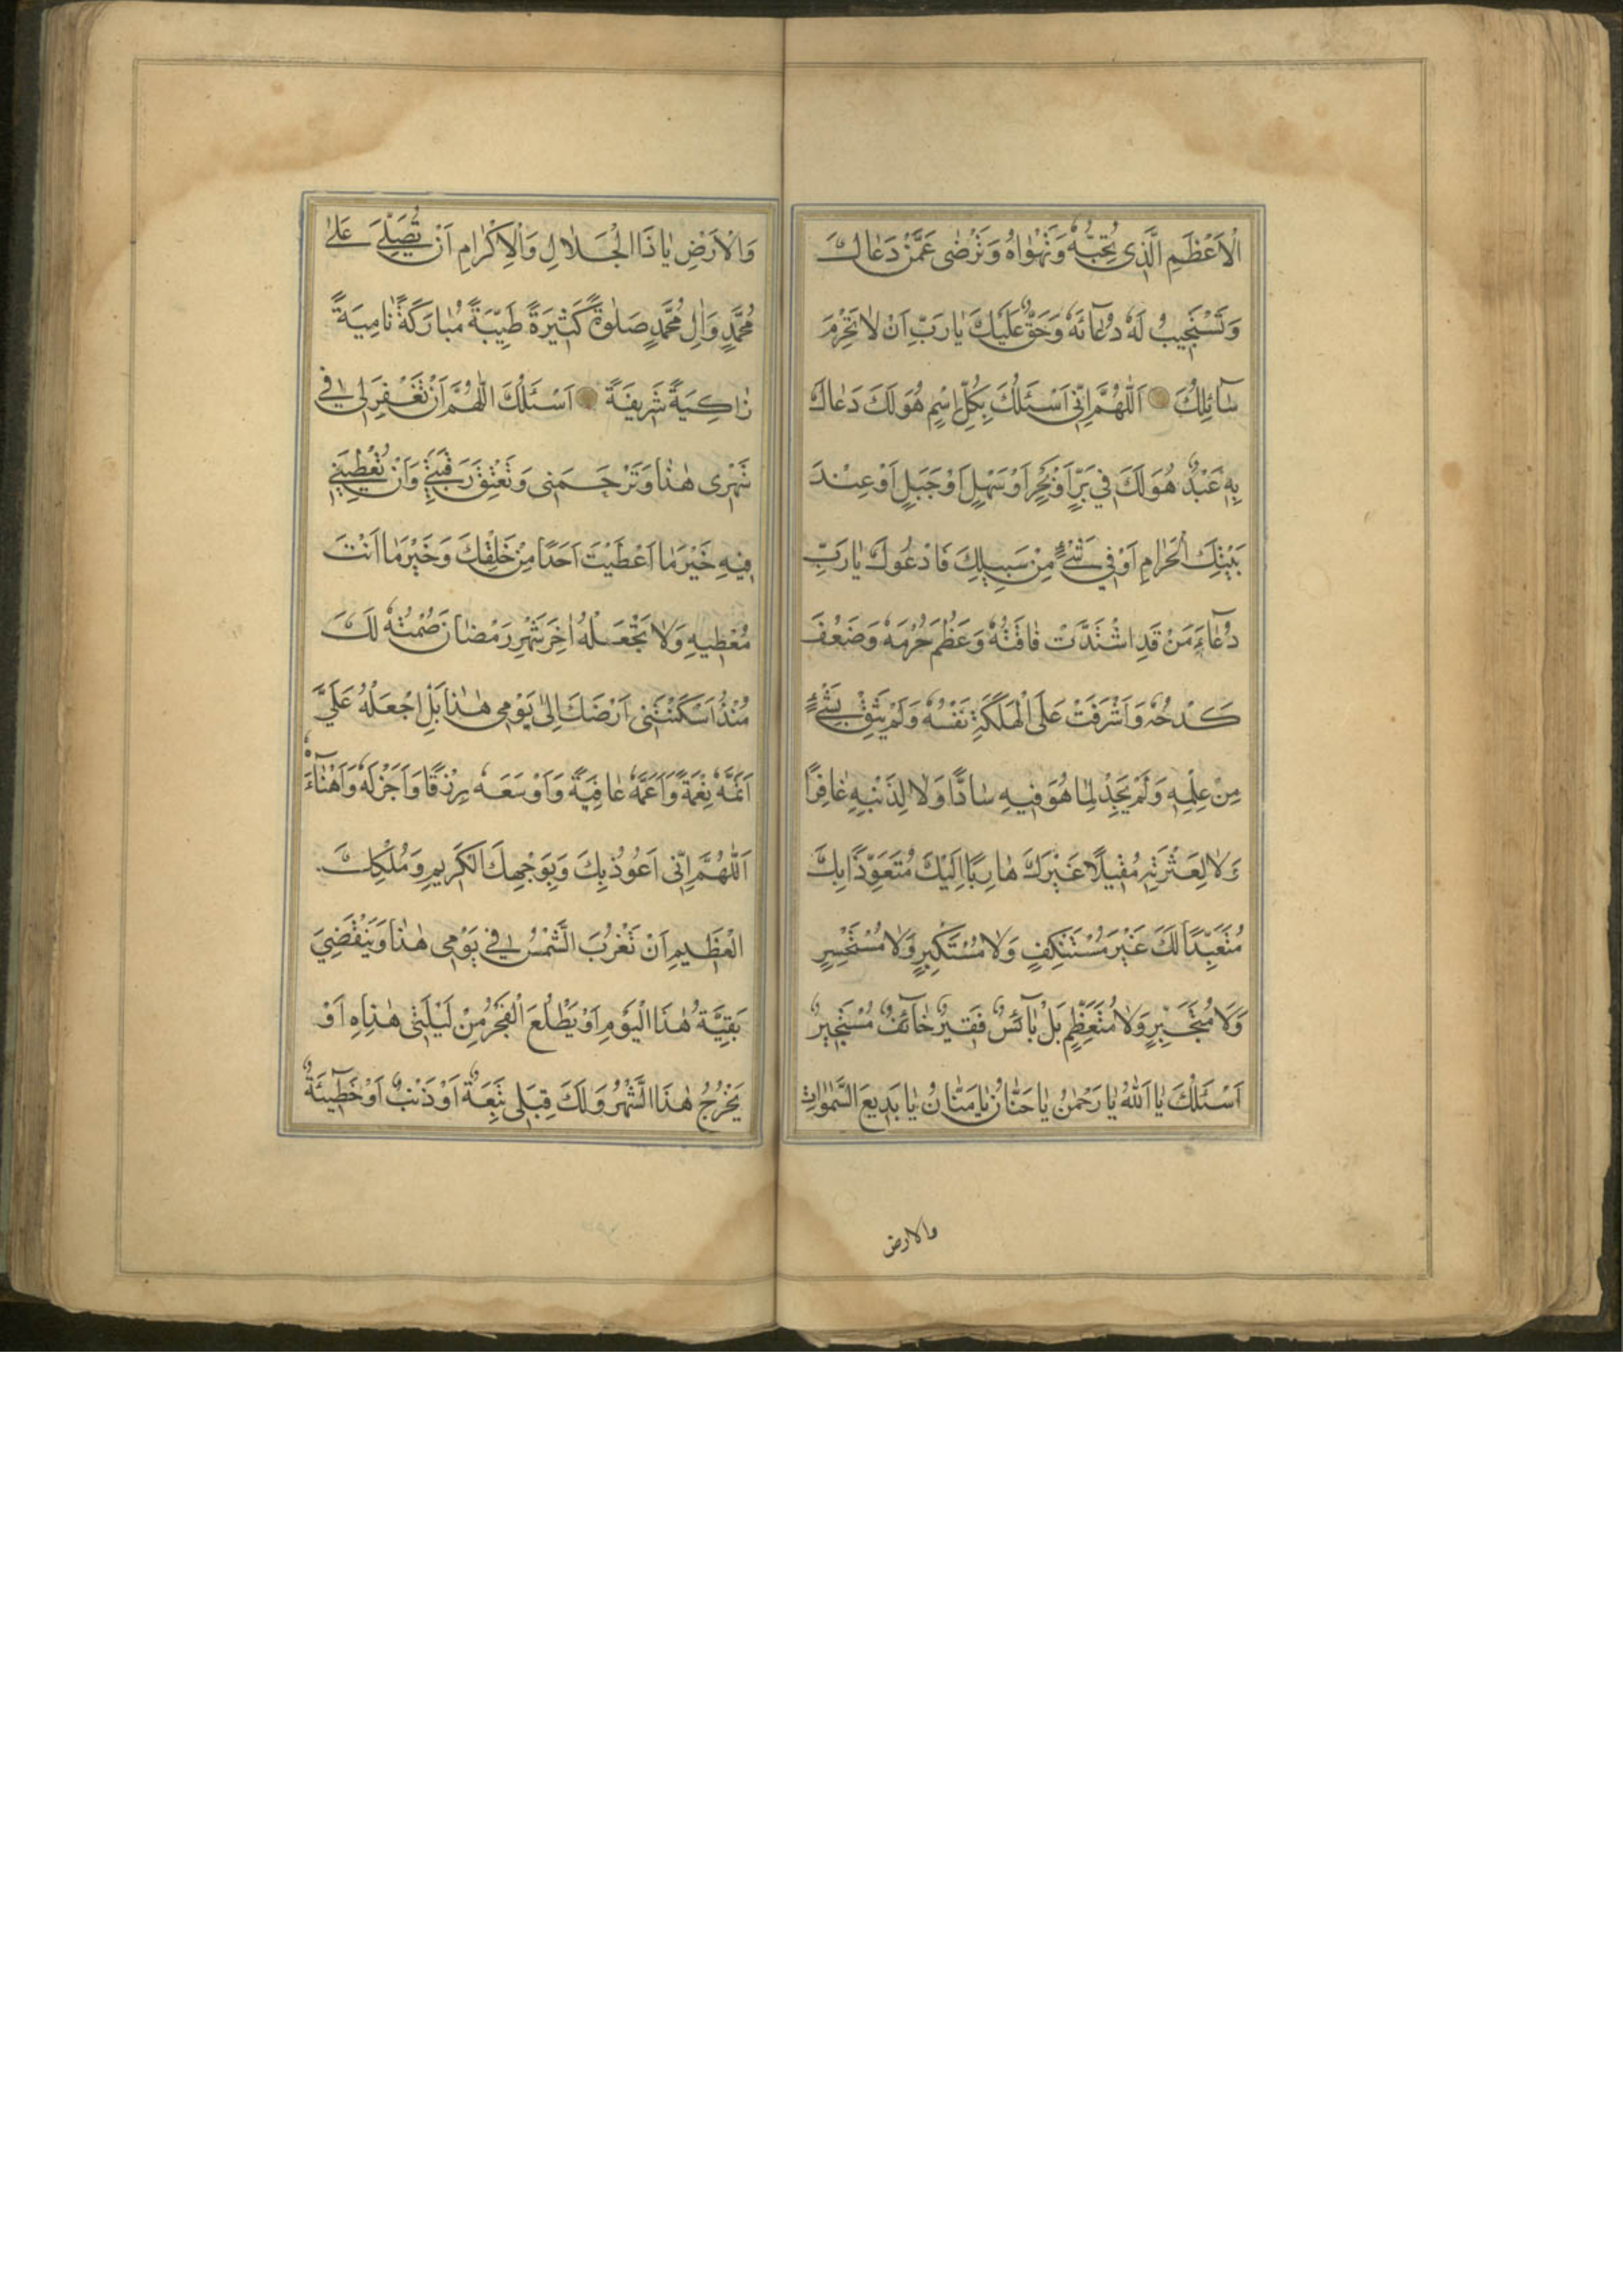 الْاَعْظَمِ الَّذِی تُحِبُّهُ وَتَهْوٰاهُ وَتَرْضٰی عَمَّنْ دَعٰاكَ
وَتَسْتَجِیبُ لَهُ دُعٰآئَهُ وَحَقٌّ عَلَیْكَ یٰا رَبِّ اَنْ لٰا تَحْرِمَ
سٰآئِلَكَ اَللّٰهُمَّ اِنّی اَسْئَلُكَ بِكُلِّ اسْمٍ هُوَ لَكَ دَعٰاكَ
بِهِ عَبْدٌ هُوَ لَكَ فِي بَرٍّ اَوْ بَحْرٍ اَوْ سَهْلٍ اَوْ جَبَلٍ اَوْ عِنْدَ
بَیْتِكَ الْحَرٰامِ اَوْ فِي شَیْءٍ مِنْ سَبِیلِكَ فَادْعُوكَ یٰا رَبِّ
دُعٰاءَ مَنْ قَدِ اشْتَدَّتْ فٰاقَتُهُ وَعَظُمَ جُرْمُهُ وَضَعُفَ
كَدْحُهُ وَاَشْرَفَتْ عَلَی الْهَلَكَةِ نَفْسُهُ وَلَمْ یَثِقْ بِشَیْءٍ
مِنْ عِلْمِهِ وَلَمْ یَجِدْ لِمٰا هُوَ فِیهِ سٰادًّا وَلٰا لِذَنْبِهِ غٰافِرًا
وَلٰا لِعَثْرَتِهِ مُقِیلًا غَیْرَكَ هٰارِبًا اِلَیْكَ مُتَعَوِّذًا بِكَ
مُتَعَبِّدًا لَكَ غَیْرَ مُسْتَنْكِفٍ وَلٰا مُسْتَكْبِرٍ وَلٰا مُسْتَحْسِرٍ
وَلٰا مُتَجَبِّرٍ وَلٰا مُتَعَظِّمٍ بَلْ بٰآئِسٌ فَقِیرٌ خٰآئِفٌ مُسْتَجِیرٌ
اَسْئَلُكَ یٰا اَللّٰهُ یٰا رَحْمٰنُ یٰا حَنّٰانُ یٰا مَنّٰانُ یٰا بَدِیعَ السَّمٰوٰاتِ
والارض
وَالْاَرْضِ یٰا ذَا الْجَلٰالِ وَالْاِكْرٰامِ اَنْ تُصَلِّيَ عَلٰی
مُحَمَّدٍ وَاٰلِ مُحَمَّدٍ صَلٰوةً كَثِیرَةً طَیِّبَةً مُبٰارَكَةً نٰامِیَةً
زٰاكِیَةً شَرِیفَةً اَسْئَلُكَ اللّٰهُمَّ اَنْ تَغْفِرَ لِي فِي
شَهْرِی هٰذٰا وَتَرْحَمَنِی وَتُعْتِقَ رَقَبَتِي وَاَنْ تُعْطِیَنِي
فِیهِ خَیْرَ مٰا اَعْطَیْتَ اَحَدًا مِنْ خَلْقِكَ وَخَیْرَ مٰا اَنْتَ
مُعْطِیهِ وَلٰا تَجْعَلْهُ اٰخِرَ شَهْرِ رَمْضٰانَ صُمْتُهُ لَكَ
مُنْذُ اَسْكَنْتَنِی اَرْضَكَ اِلٰی یَوْمِی هٰذٰا بَلِ اجْعَلْهُ عَلَيَّ
اَتَمَّهُ نِعْمَةً وَاَعَمَّهُ عٰافِیَةً وَاَوْسَعَهُ رِزْقًا وَاَجْزَلَهُ وَاَهْنٰآءَهُ
اَللّٰهُمَّ اِنّی اَعُوذُ بِكَ وَبِوَجْهِكَ الْكَرِیمِ وَمُلْكِكَ
الْعَظِیمِ اَنْ تَغْرُبَ الشَّمْسُ فِي یَوْمِی هٰذٰا وَیَنْقَضِيَ
بَقِیَّةُ هٰذَا الْیَوْمِ اَوْ یَطْلُعَ الْفَجْرُ مِنْ لَیْلَتِی هٰذِهِ اَوْ
یَخْرُجُ هٰذَا الشَّهْرُ وَلَكَ قِبَلِی تَبِعَةٌ اَوْ ذَنْبٌ اَوْ خَطٰٓیئَةٌ